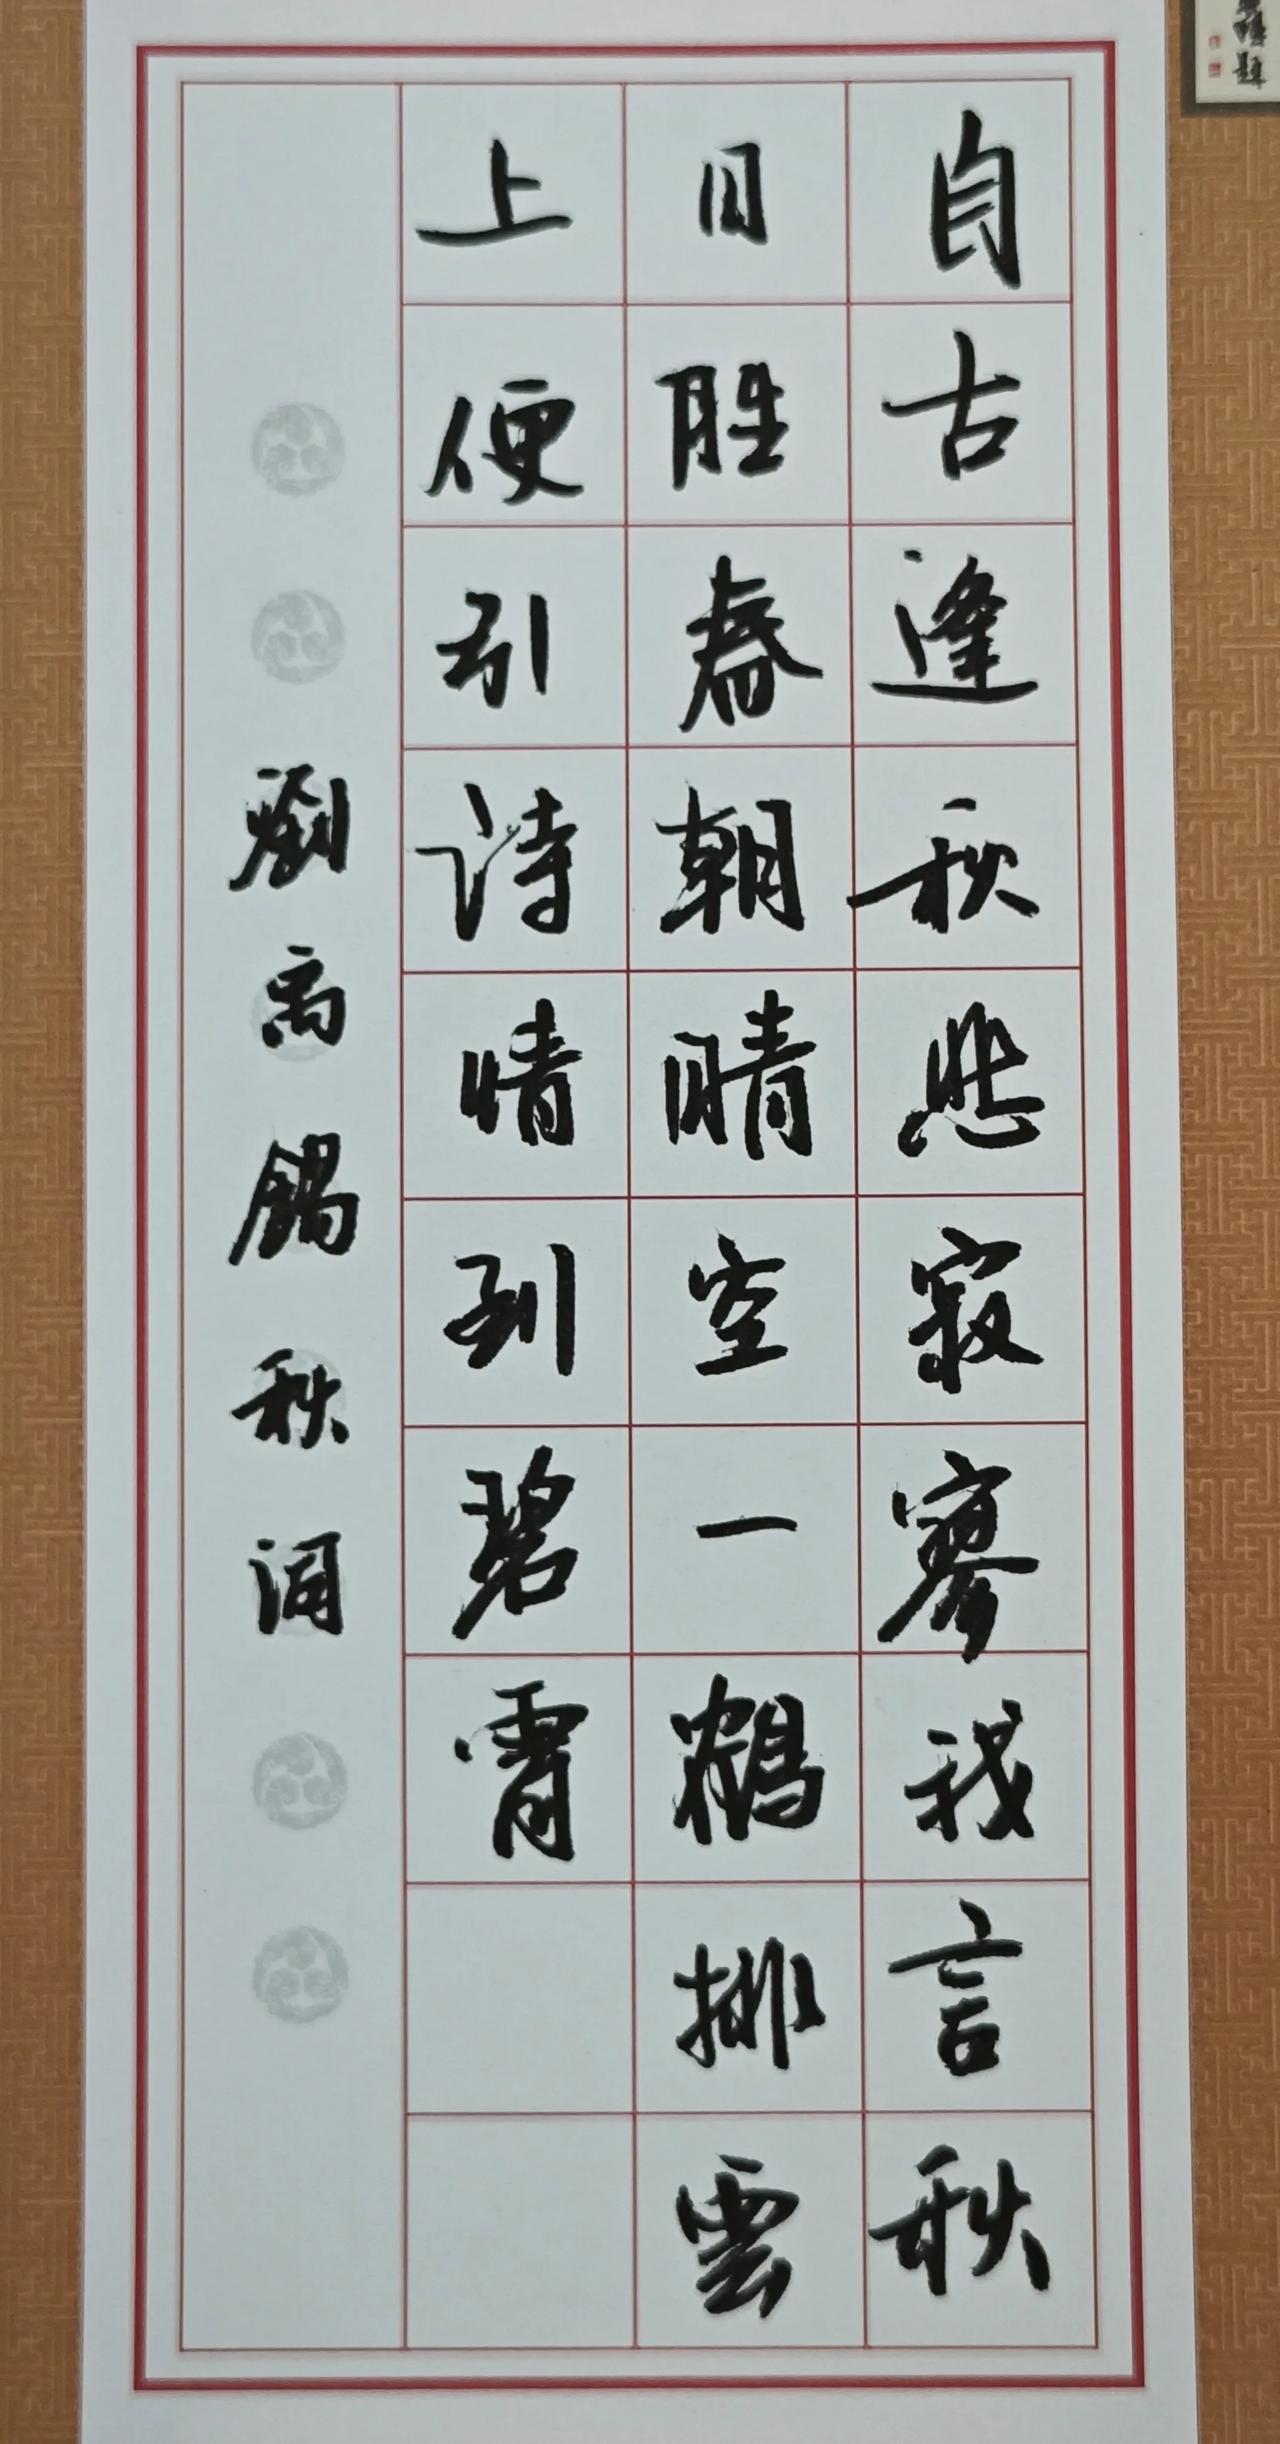 自古逢秋悲寂寥我言秋
日胜春朝晴空一鶴排雲
上便引诗情到碧霄
劉禹錫秋词
題